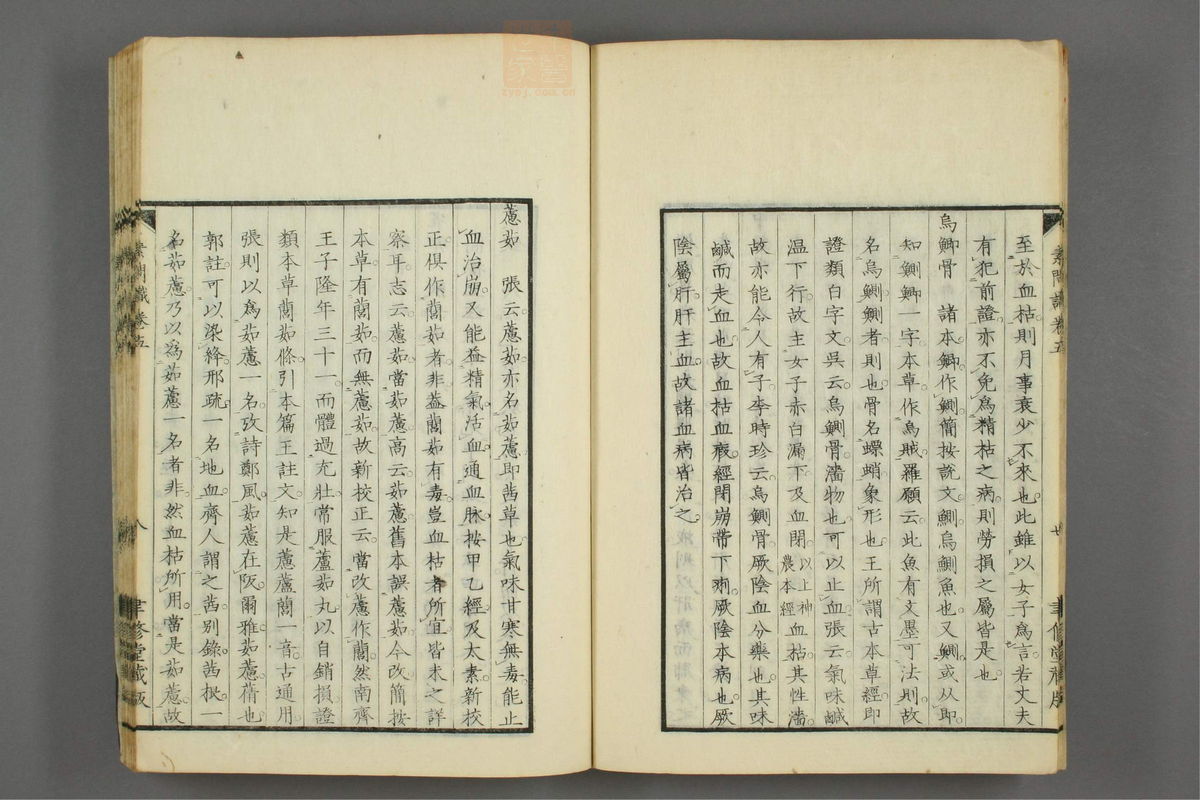 至於血枯則月事衰少不來也此雖以女子爲言若丈夫
有犯前證亦不免爲精枯之病則勞損之屬皆是也
烏鰂骨　諸本鰂作鰂簡按說文鰂烏鰂魚也又鰂或从即
知鰂鯽一字本草作烏賊羅願云此魚有文墨可法則故
名烏鰂鰂者則也骨名螵蛸象形也王所謂古本草經即
證類白字文吳云烏鰂骨濇物也可以止血張云氣味鹹
温下行故主女子赤白漏下及血閉以上神農本經血枯其性濇
故亦能令人有子李時珍云烏鰂骨厥陰血分藥也其味
鹹而走血也故血枯血瘕經閉崩帶下痢厥陰本病也厥
陰屬肝肝主血故諸血病皆治之
素問識卷五
七
聿修堂藏版
藘茹　張云藘茹亦名茹藘即茜草也氣味甘寒無毒能止
血治崩又能益精氣活血通血脉按甲乙經及太素新校
正俱作䕡茹者非蓋䕡茹有毒豈血枯者所宜皆未之詳
察耳志云藘茹當茹藘高云茹藘舊本誤藘茹今改簡按
本草有䕡茹而無藘茹故新校正云當改藘作䕡然南齊
王子隆年三十一而體過充壯常服蘆茹丸以自銷損證
類本草䕡茹條引本篇王註文知是藘蘆䕡一音古通用
張則以爲茹藘一名攷詩鄭風茹藘在阪爾雅茹藘蒨也
郭註可以染絳邢疏一名地血齊人謂之茜別錄茜根一
名茹藘乃以爲茹藘一名者非然血枯所用當是茹藘故
素問識卷五
八
聿修堂藏版